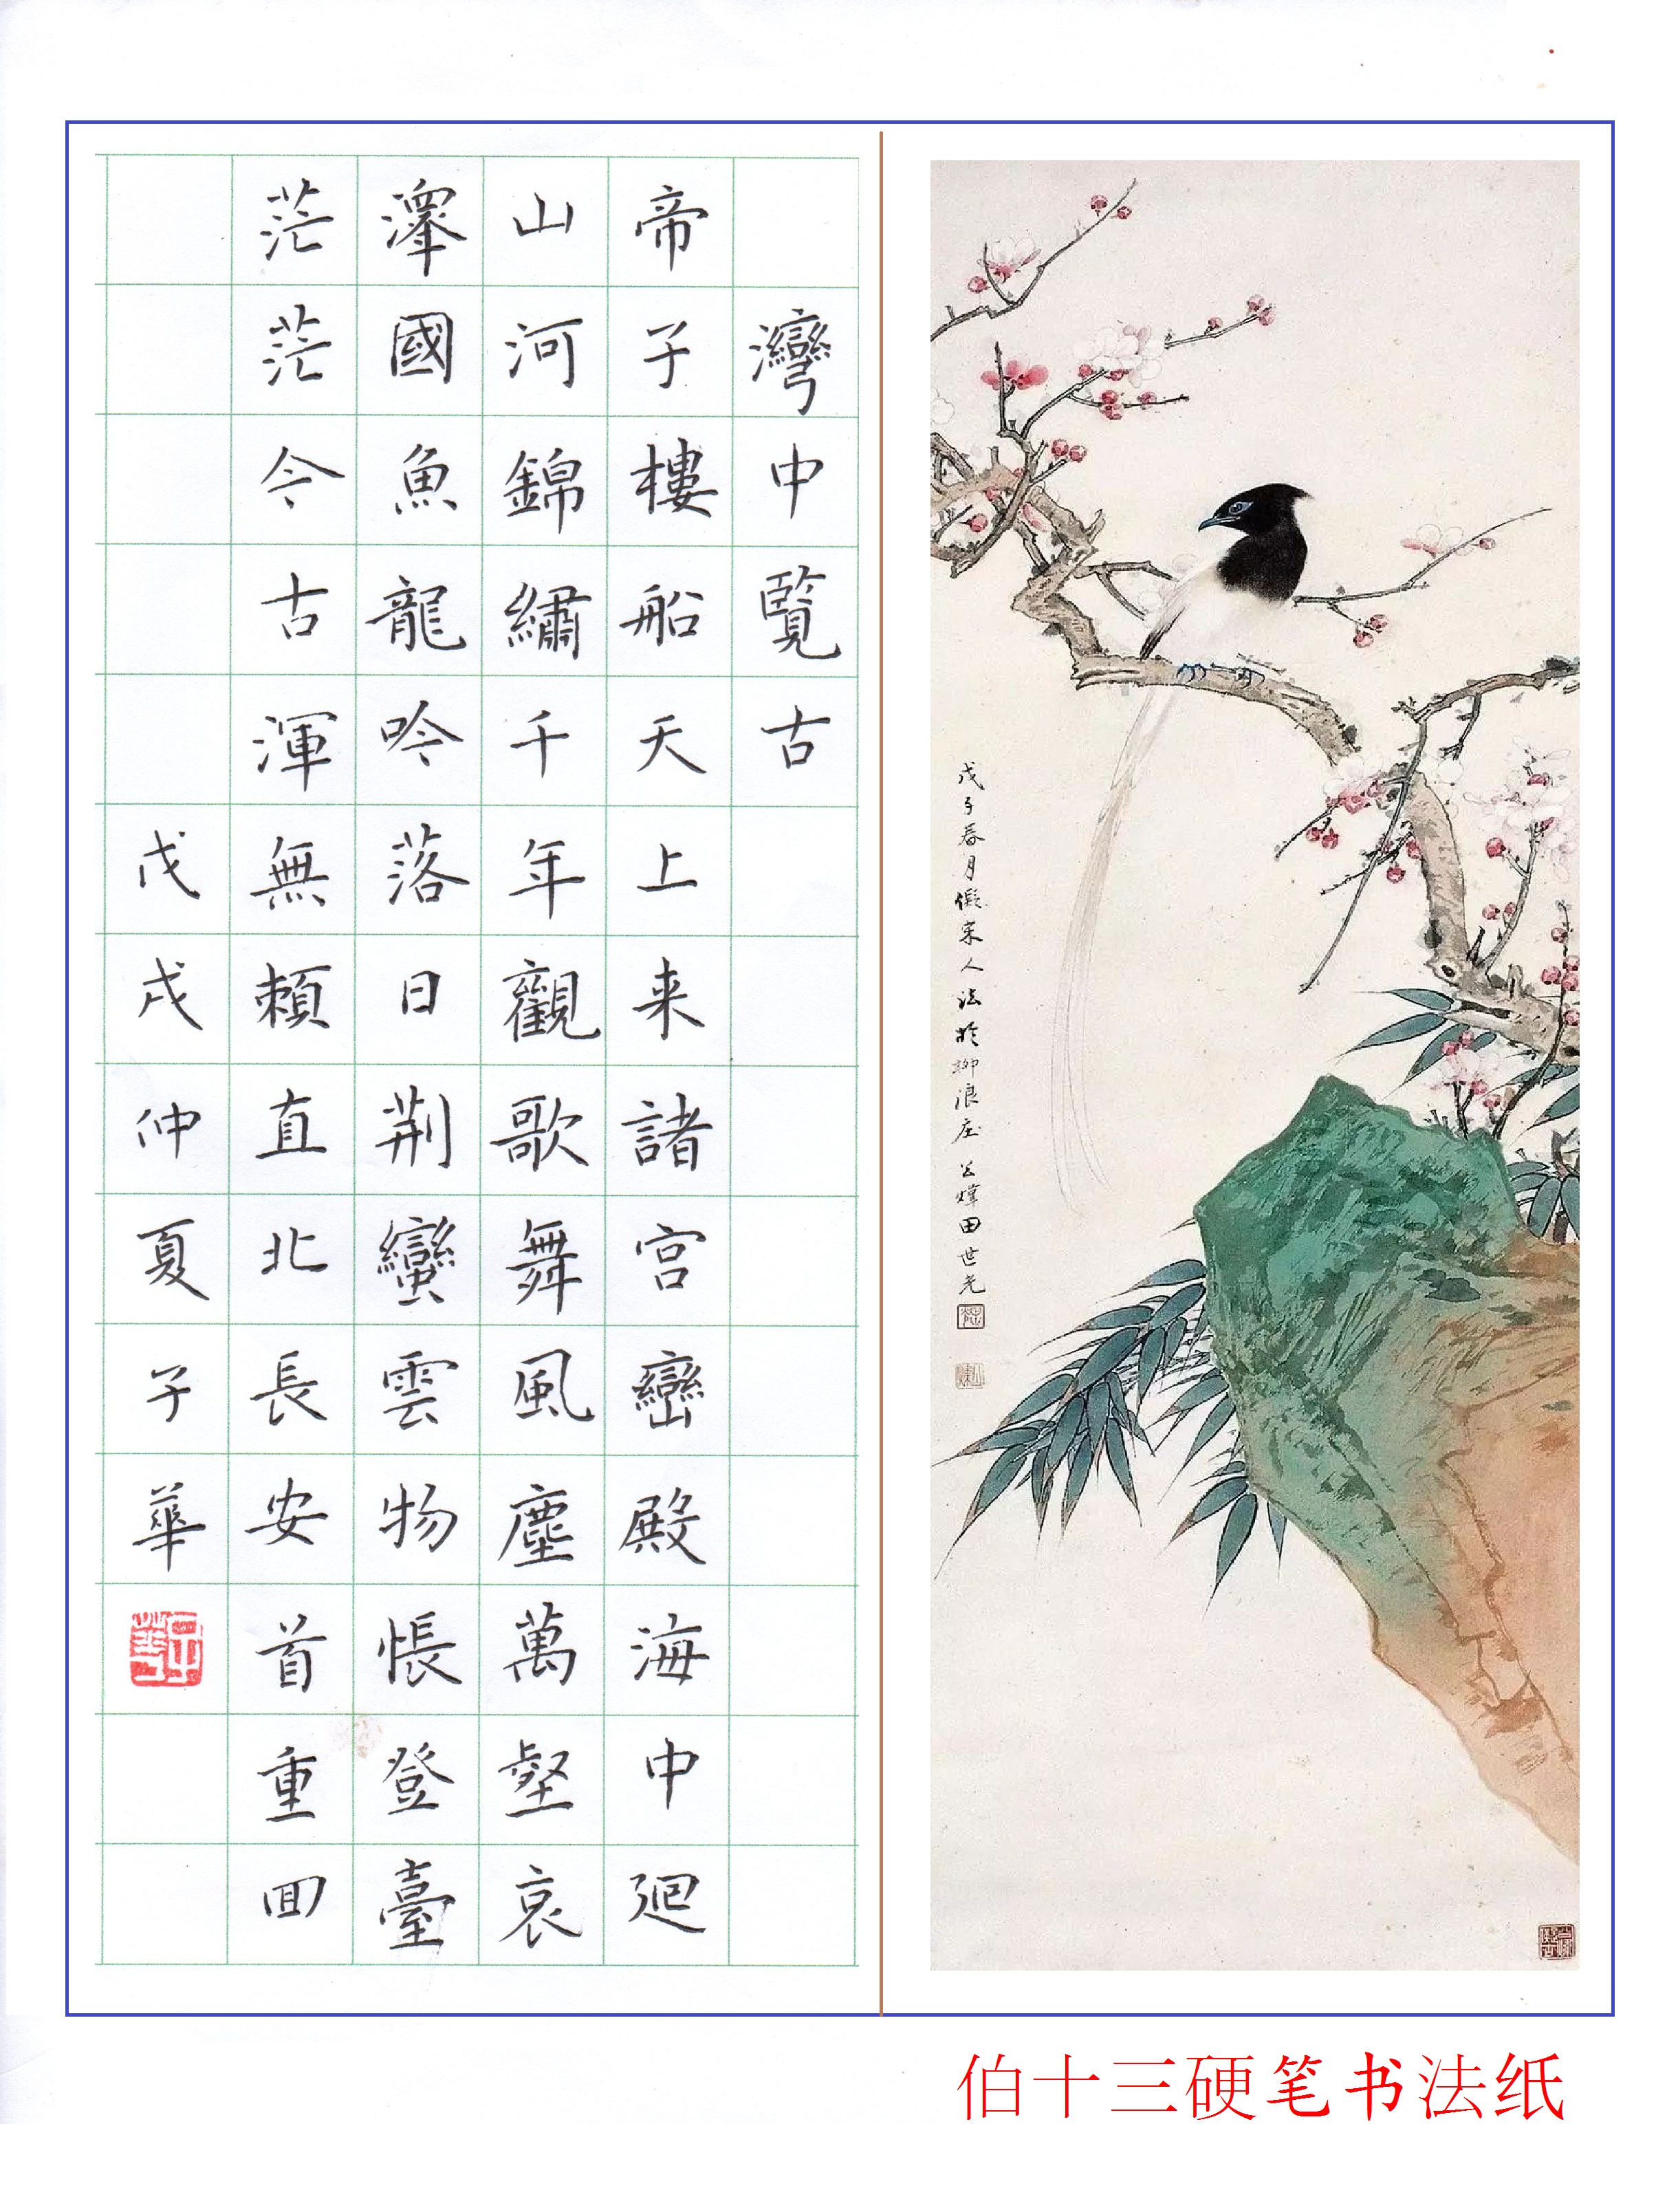 灣中覽古
帝子樓船天上来諸宫巒殿海中廻
山河錦繡千年觀歌舞風塵萬壑哀
澤國魚龍吟落日荆蠻雲物悵登臺
茫茫今古渾無賴直北長安首重囬
戊戌仲夏子華
戊子春月儗宋人法於柳浪庄 公煒田世光
伯十三硬笔书法纸